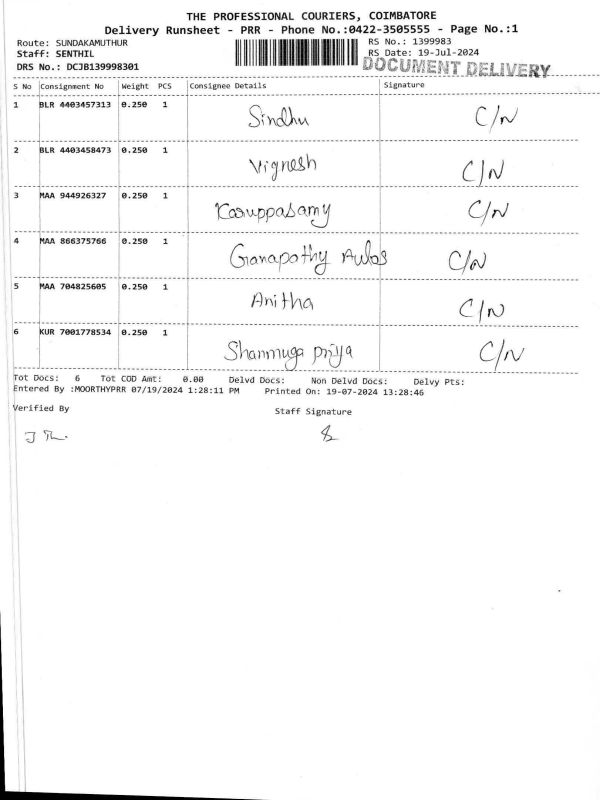 THE PROFESSIONAL COURIERS, COIMBATORE
Delivery Runsheet - PRR - Phone No.:0422-3505555 - Page No.:1
Route: SUNDAKAMUTHUR RS No.: 1399983
Staff: SENTHIL RS Date: 19-Jul-2024
DRS No.: DCJB139998301 DOCUMENT DELIVERY
S No Consignment No Weight PCS Consignee Details Signature
1 BLR 4403457313 0.250 1 Sindhu C/N
2 BLR 4403458473 0.250 1 Vignesh C/N
3 MAA 944926327 0.250 1 Karuppasamy C/N
4 MAA 866375766 0.250 1 Ganapathy C/N
5 MAA 704825605 0.250 1 Anitha C/N
6 KUR 7001778534 0.250 1 Shanmuga priya C/N
Tot Docs: 6 Tot COD Amt: 0.00 Delvd Docs: Non Delvd Docs: Delvy Pts:
Entered By :MOORTHYPRR 07/19/2024 1:28:11 PM Printed On: 19-07-2024 13:28:46
Verified By Staff Signature